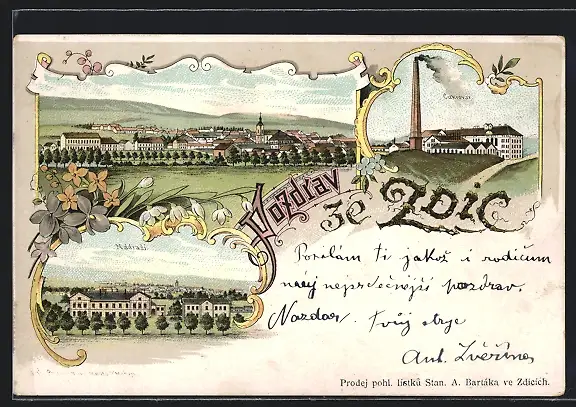 Cukrovar
Pozdrav
ze Zdic
Nádraží
Posílám ti jakož i rodičům
nejsrdečnější pozdrav.
Nazdar. Tvůj
Ant.
Prodej pohl. lístků Stan. A. Bartáka ve Zdicích.